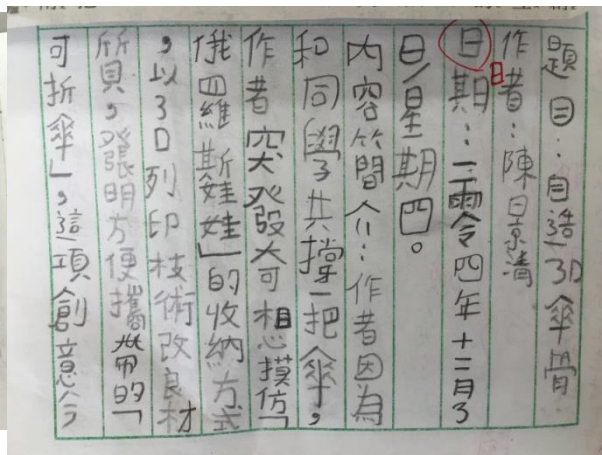 題目:自造3D傘骨
作者:陳景清
日期:二零四年十二月3
日/星期四。
內容簡介:作者因為
和同學共撐一把傘,
作者突發奇想摸仿「
俄羅斯娃娃」的收納方式
,以3D列印枝術改良材
質,發明方便攜帶的「
可折傘」,這項創意令
日